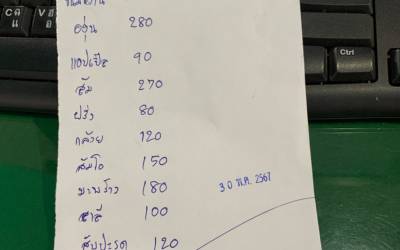 องุ่น 280
แอปเปิล 90
ส้ม 270
ฝรั่ง 80
กล้วย 120
ส้มโอ 150
มะพร้าว 180
30 พ.ค. 2567
สาลี่ 100
สับปะรด 120
Ctrl